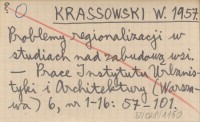 KRASSOWSKI W. 1957
Problemy regionalizacji w
studiach nad zabudową wsi.
— Prace Instytutu Urbanis-
tyki i Architektury (Warsza-
wa) 6, nr 1-16: 57-101.